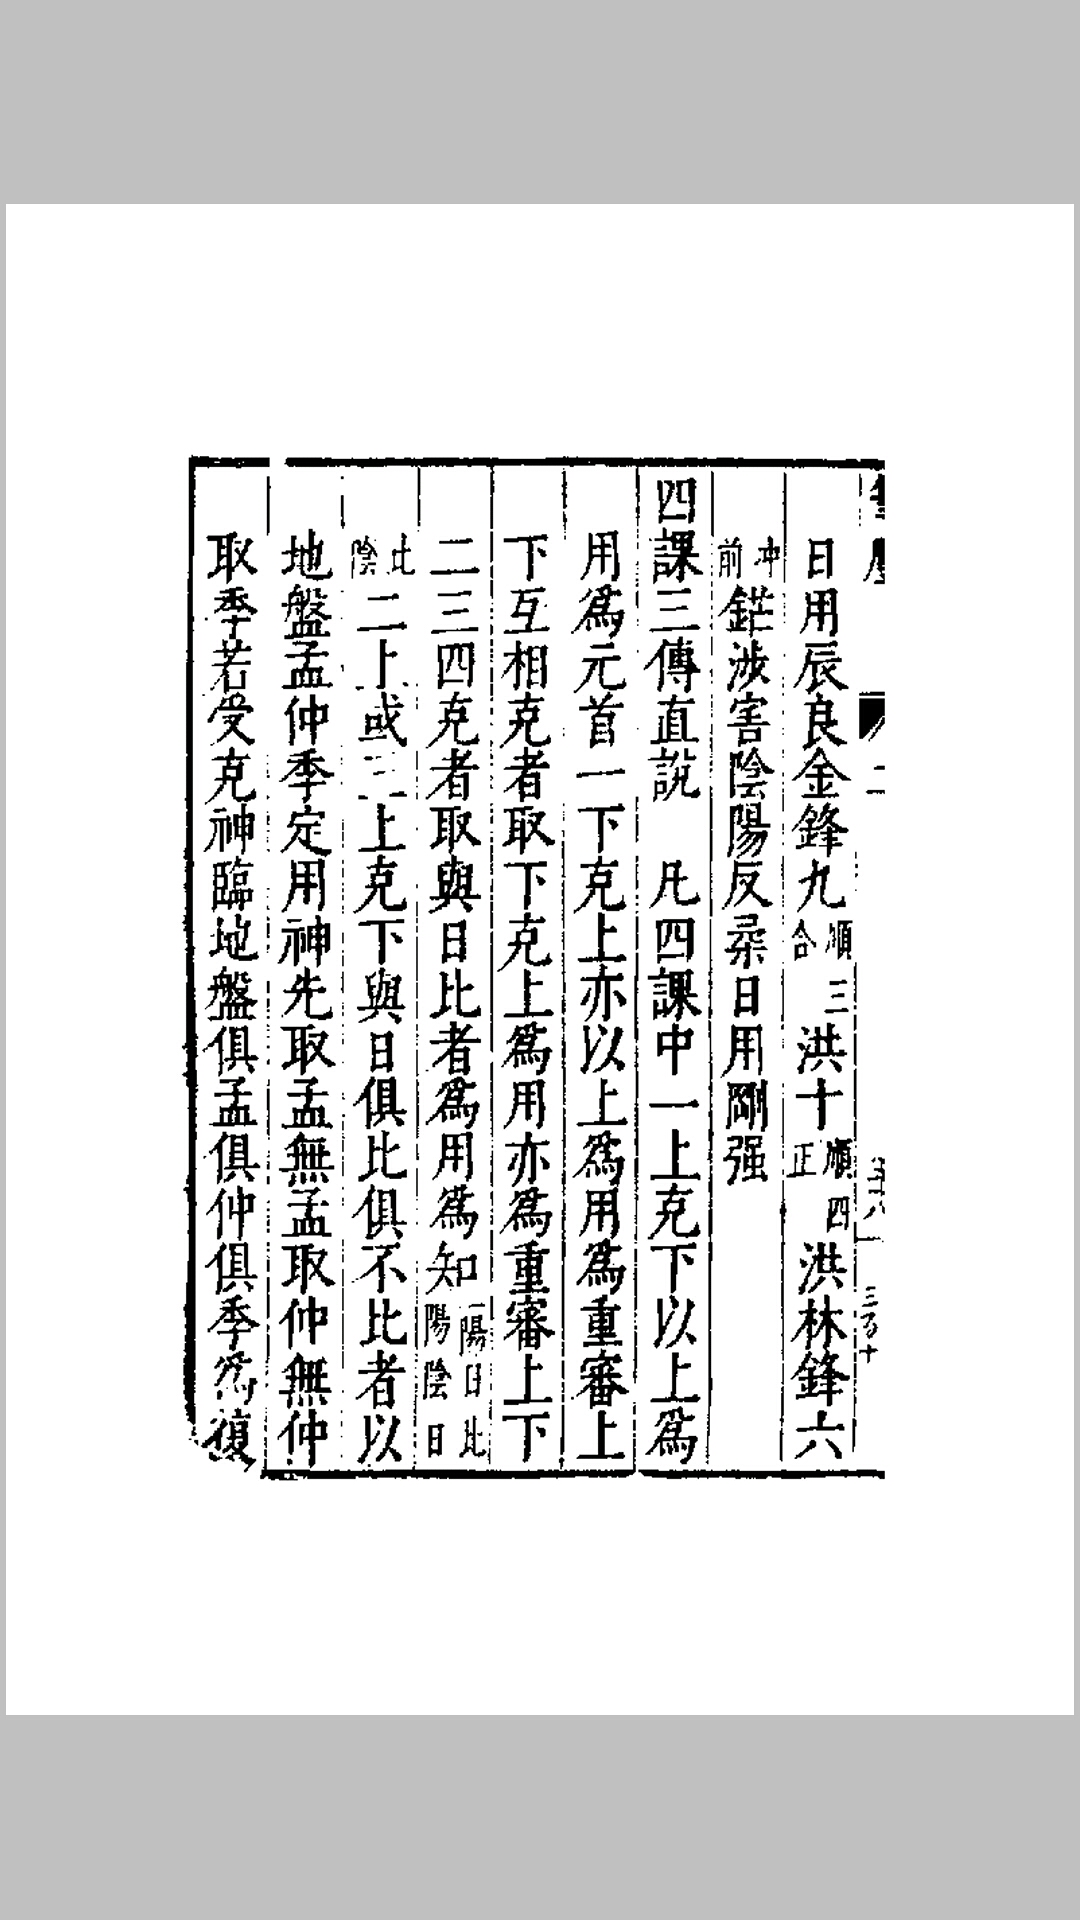 日用辰良金鋒九順三合洪十順四正洪林鋒六
沖前鋩涉害陰陽反桒日用剛强
四課三傳直說　凡四課中一上克下以上爲
用爲元首一下克上亦以上爲用爲重審上
下互相克者取下克上爲用亦爲重審上下
二三四克者取與日比者爲用爲知一陽日比陽陰日
比陰二上或三上克下與日俱比俱不比者以
地盤孟仲季定用神先取孟無孟取仲無仲
取季若受克神臨地盤俱孟俱仲俱季爲復